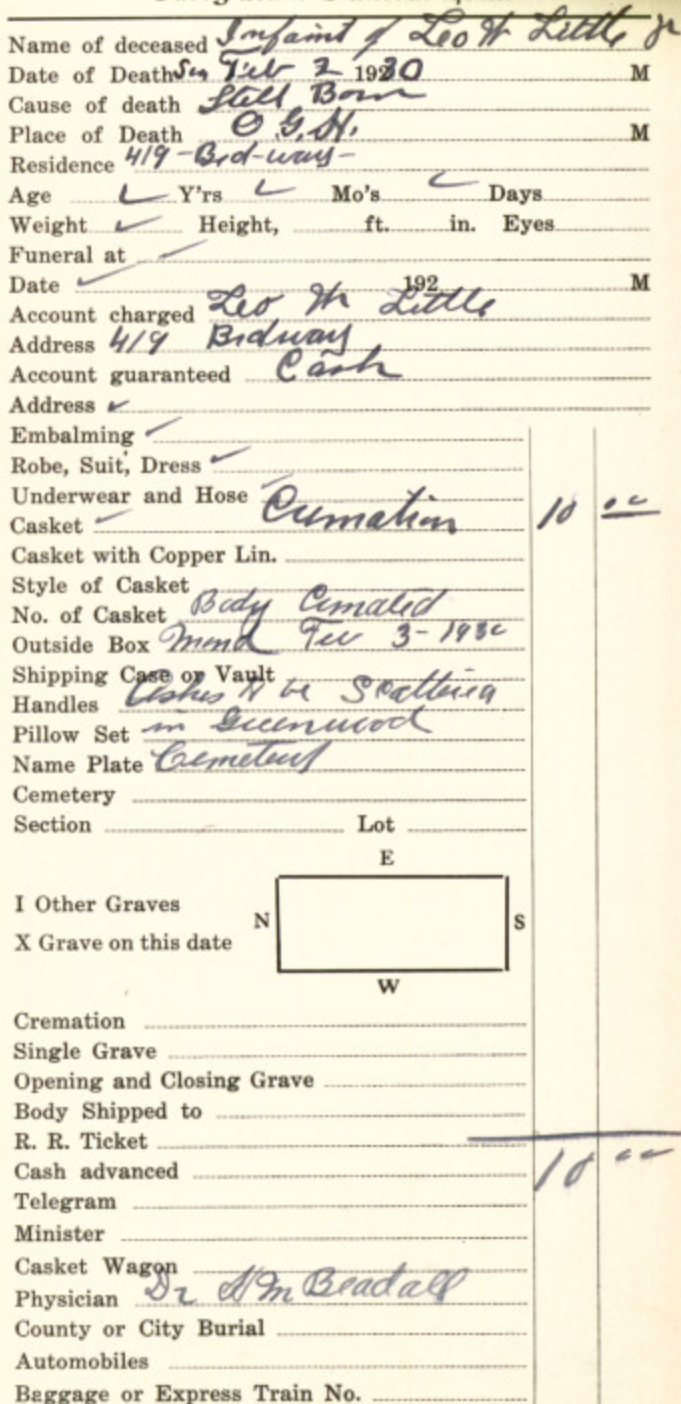 Name of deceased Infaint of Leo W Little Jr
Date of Death Sun Feb 2 1930 M
Cause of death Still Born
Place of Death O.G.H. M
Residence 419 - Brd-way -
Age Y'rs Mo's Days
Weight Height, ft. in. Eyes
Funeral at
Date 192 M
Account charged Leo W Little
Address 419 Brdway
Account guaranteed Cash
Address
Embalming
Robe, Suit, Dress
Underwear and Hose
Casket Cremation 10 00
Casket with Copper Lin.
Style of Casket
No. of Casket Body Cremated
Outside Box Mond Feb 3 - 1930
Shipping Case or Vault
Handles Ashes to be Scattered
Pillow Set in Greenwood
Name Plate Cemetery
Cemetery
Section Lot
E
I Other Graves
N S
X Grave on this date
W
Cremation
Single Grave
Opening and Closing Grave
Body Shipped to
R. R. Ticket
Cash advanced 10 00
Telegram
Minister
Casket Wagon
Physician Dr
County or City Burial
Automobiles
Baggage or Express Train No.